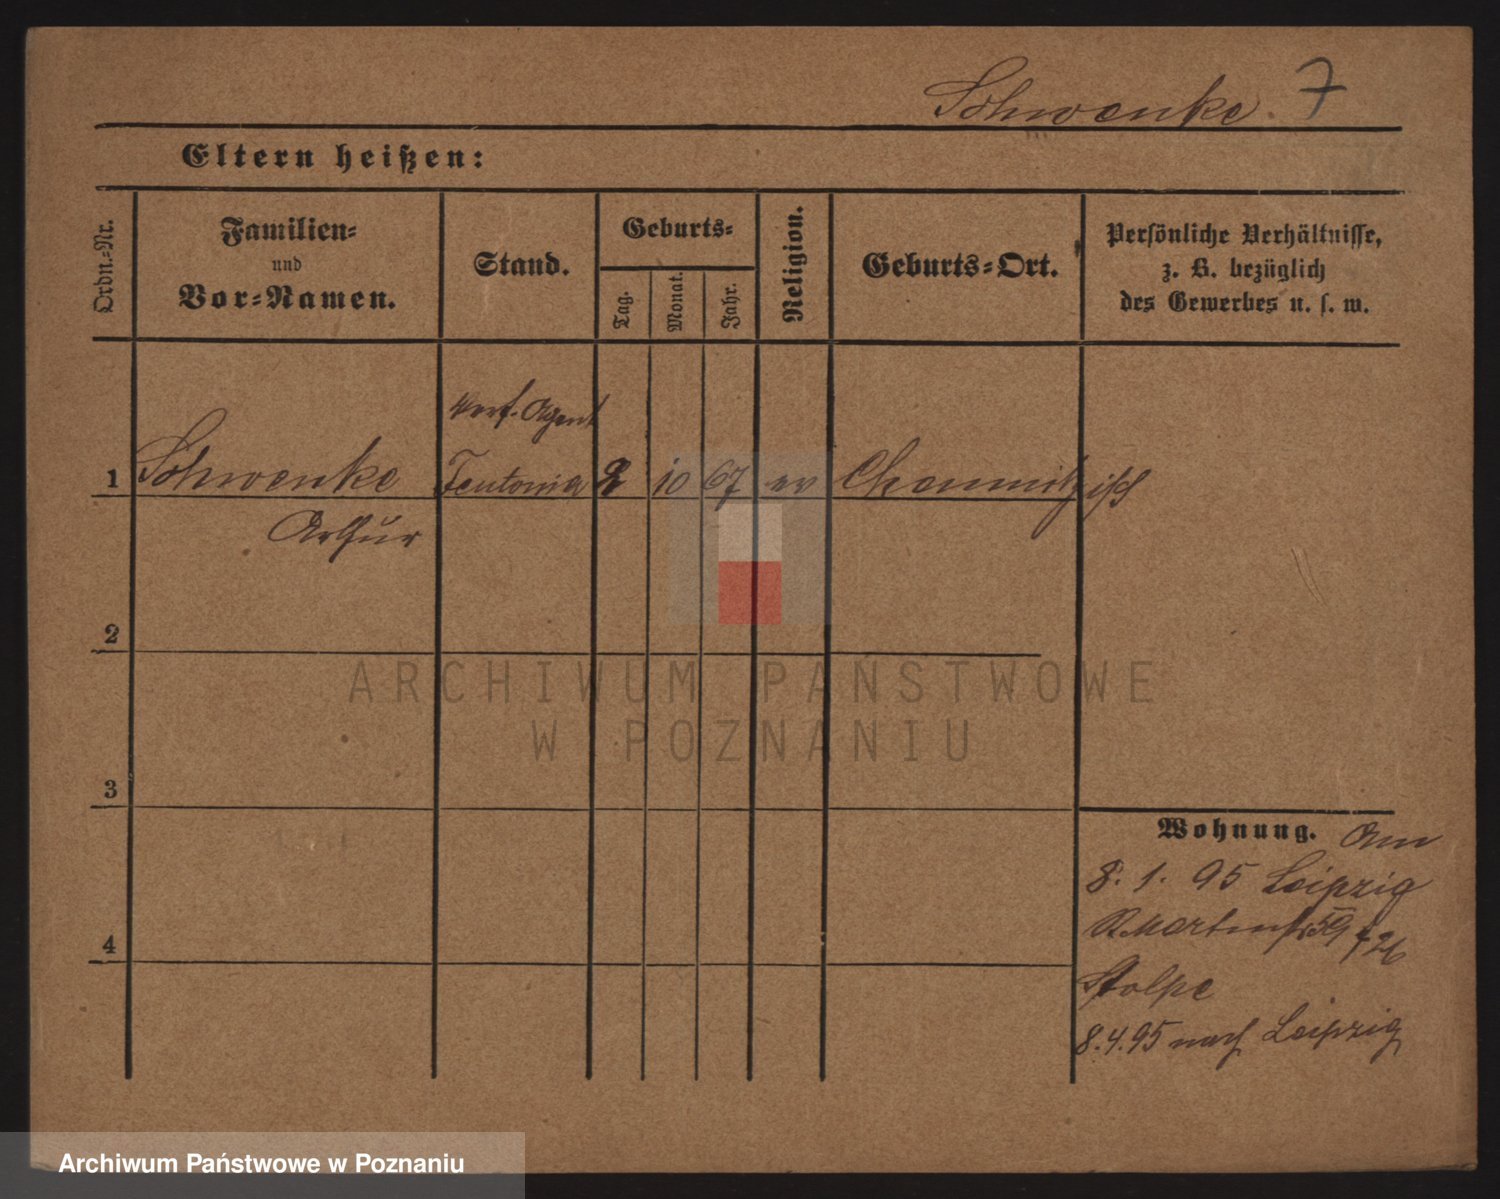 Schwenke. 7
Eltern heißen:
Ordn.-Nr.
Familien-
und
Vor-Namen.
Stand.
Geburts-
Tag.
Monat.
Jahr.
Religion.
Geburts-Ort.
Persönliche Verhältnisse,
z. B. bezüglich
des Gewerbes u. s. w.
Agent
1 Schwenke Teutonia 2 10 67 ev
Arthur
2
3
4
Wohnung. Am
8. 1. 95 Leipzig
Stolpe
8.4.95 nach Leipzig
ARCHIWUM PAŃSTWOWE
W POZNANIU
Archiwum Państwowe w Poznaniu